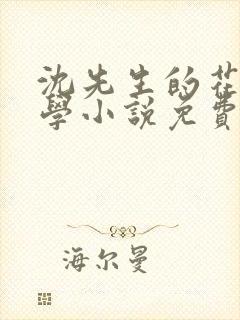 沈先生的花
學小說免費
海尔曼